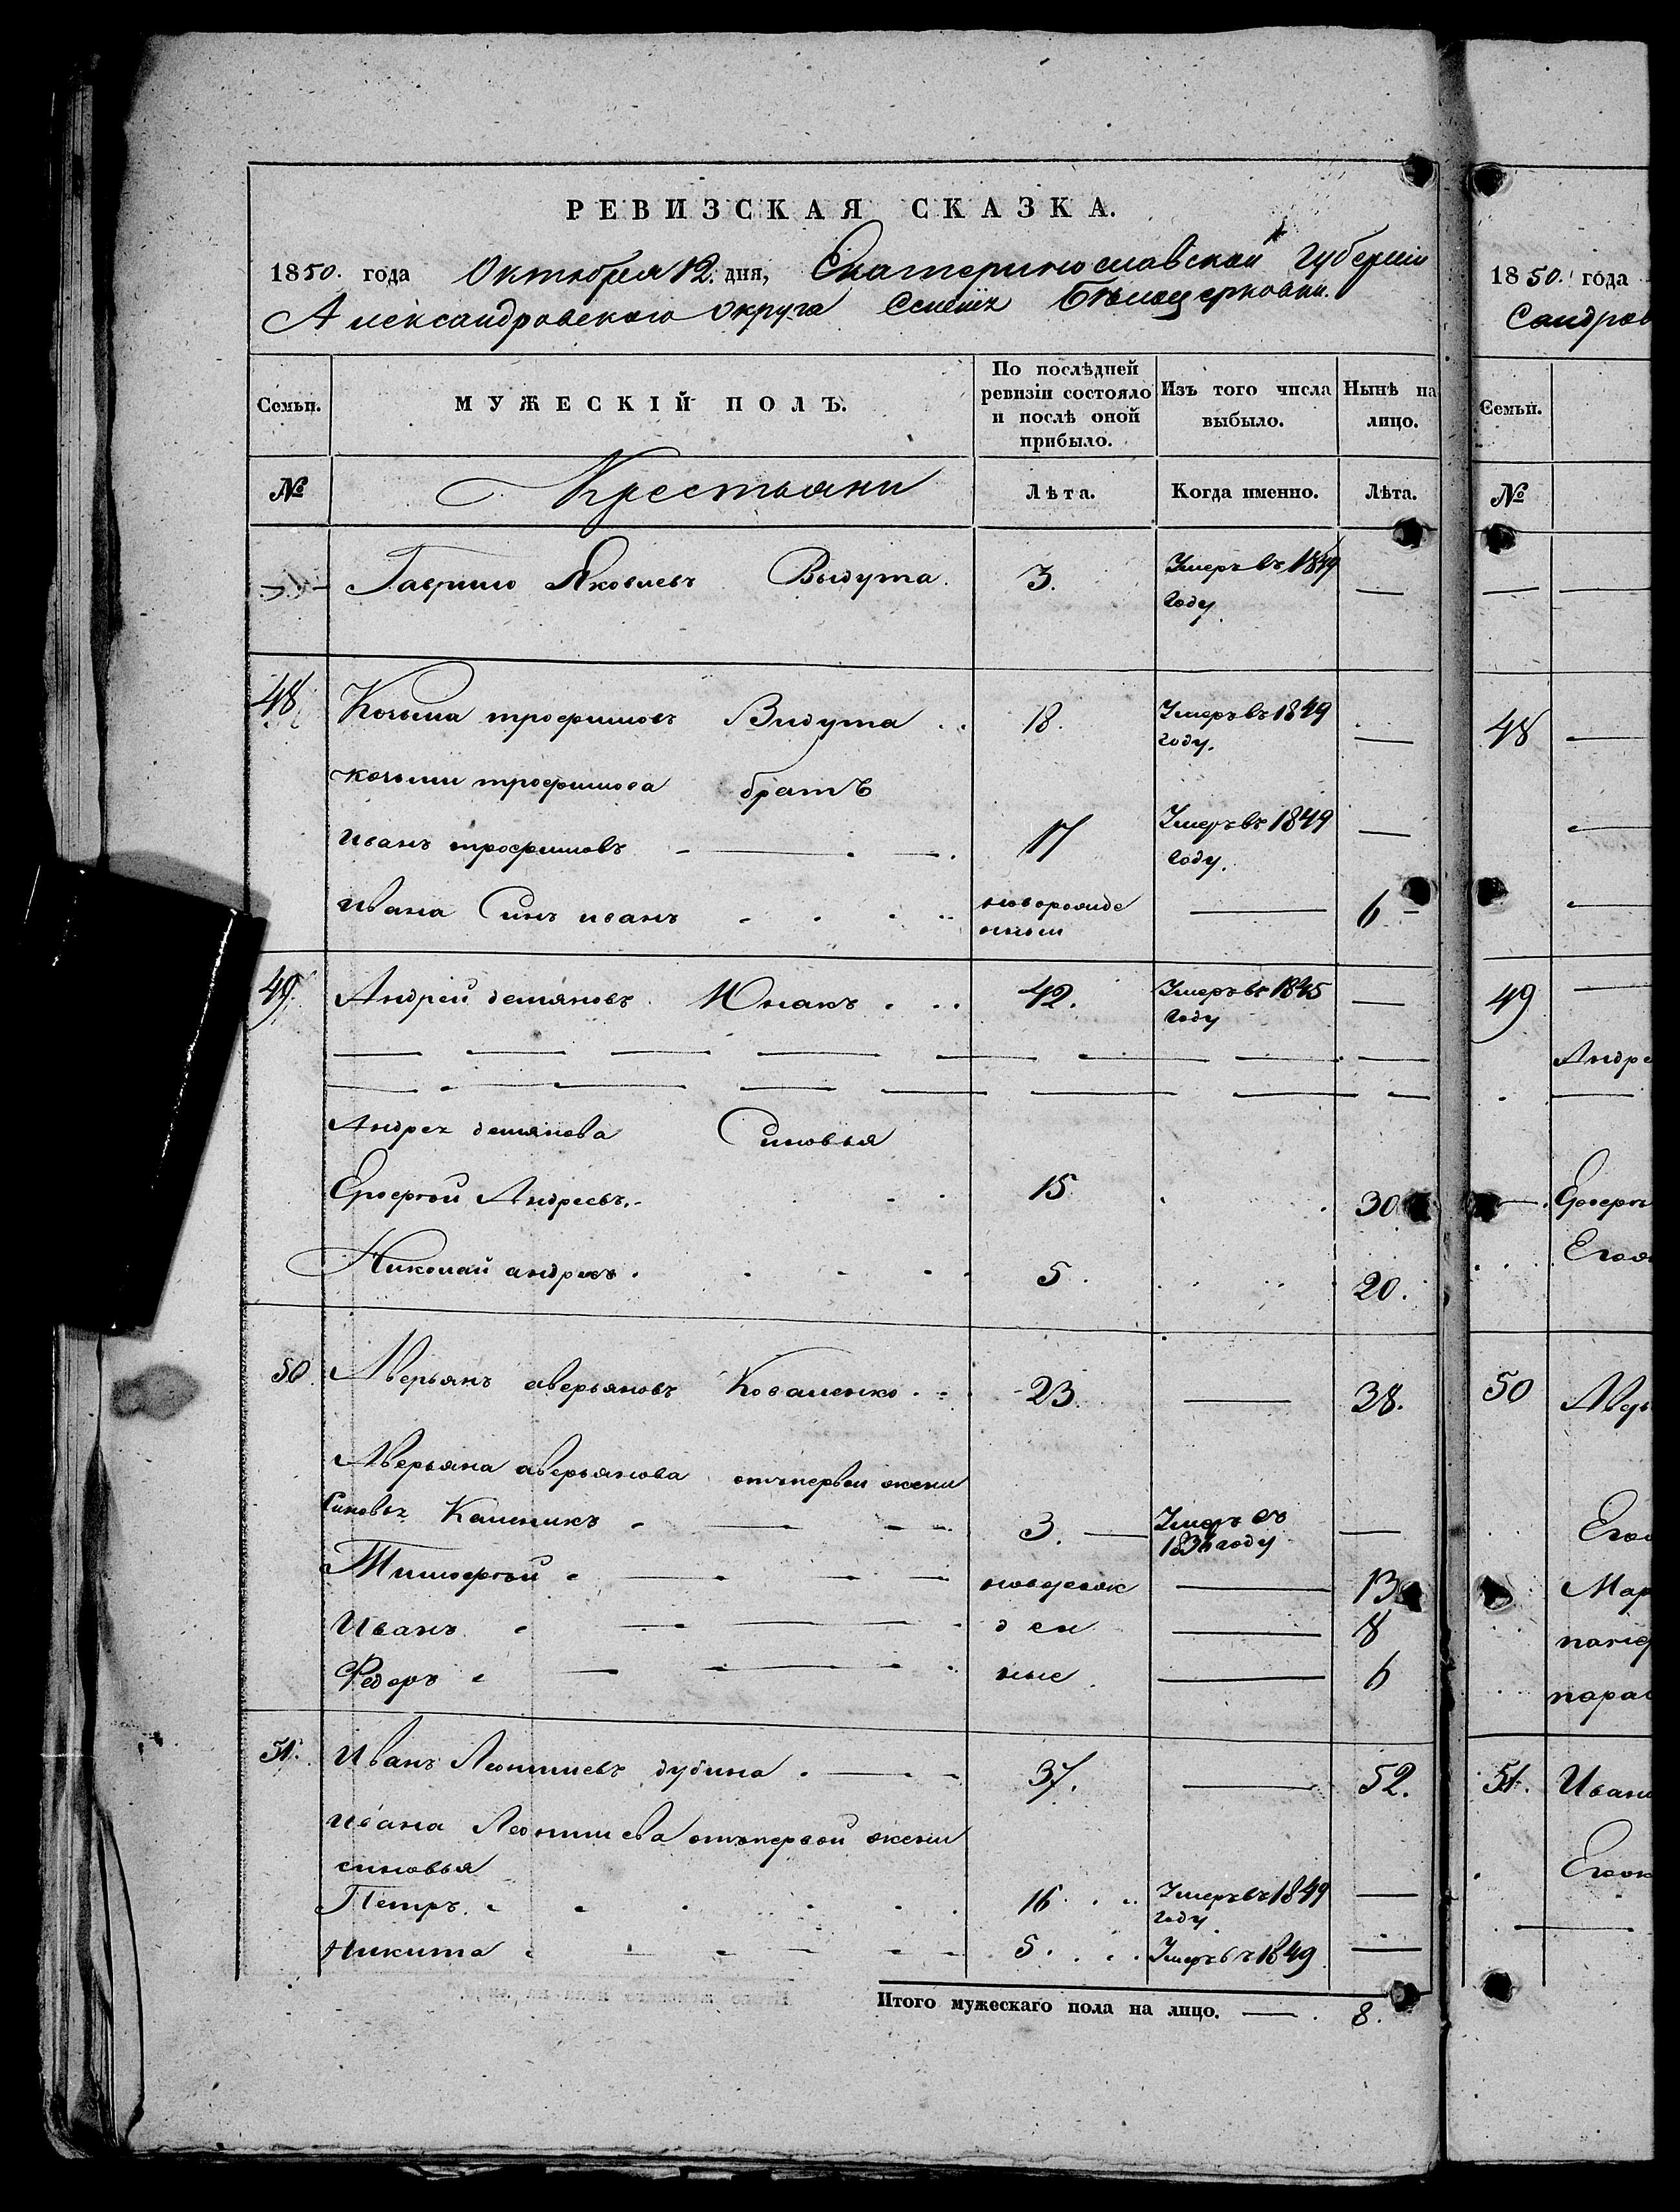 РЕВИЗСКАЯ СКАЗКА.
1850. года Октября 12. дня, Екатеринославской Губернии
Александровского Округа Бѣлоцерковки.
Семьи. МУЖЕСКІЙ ПОЛЪ. По послѣдней ревизіи состояло и послѣ оной прибыло. Изъ того числа выбыло. Нынѣ на лицо.
№ Крестьяни Лѣта. Когда именно. Лѣта.
Гаврило Яковлевъ Выдута. 3. Умеръ въ 1849 году. —
48 Козьма трофимовъ Видута 18. Умеръ въ 1849 году. —
козьми трофимова братъ
иванъ трофимовъ 17 Умеръ въ 1849 году. —
ивана Синъ иванъ новорожде нный — 6
49. Андрей демяновъ Юнакъ 42. Умеръ въ 1845 году —
Андрея демянова Синовья
Ерофтѣй Андреевъ. 15 30
Николай андреевъ. 5. 20.
50. Аверьянъ аверьяновъ Коваленко 23. — 38.
Аверьяна аверьянова отъ первой жени
Синовья Калиникъ 3. Умеръ въ 1836 году —
Тимофтѣй новорож — 13
Иванъ ден — 8
Федоръ ные — 6
51. Иванъ Леонтиевъ дубина 37. — 52.
ивана Леонтиева отъ первой жени
синовья
Петръ. 16 Умеръ въ 1849 году —
Никита 5. Умеръ въ 1849 —
Итого мужескаго пола на лицо. — 8.
1850. года
Сандров
Семьи.
№
48
49
Андре
50
Мар
51. Иван